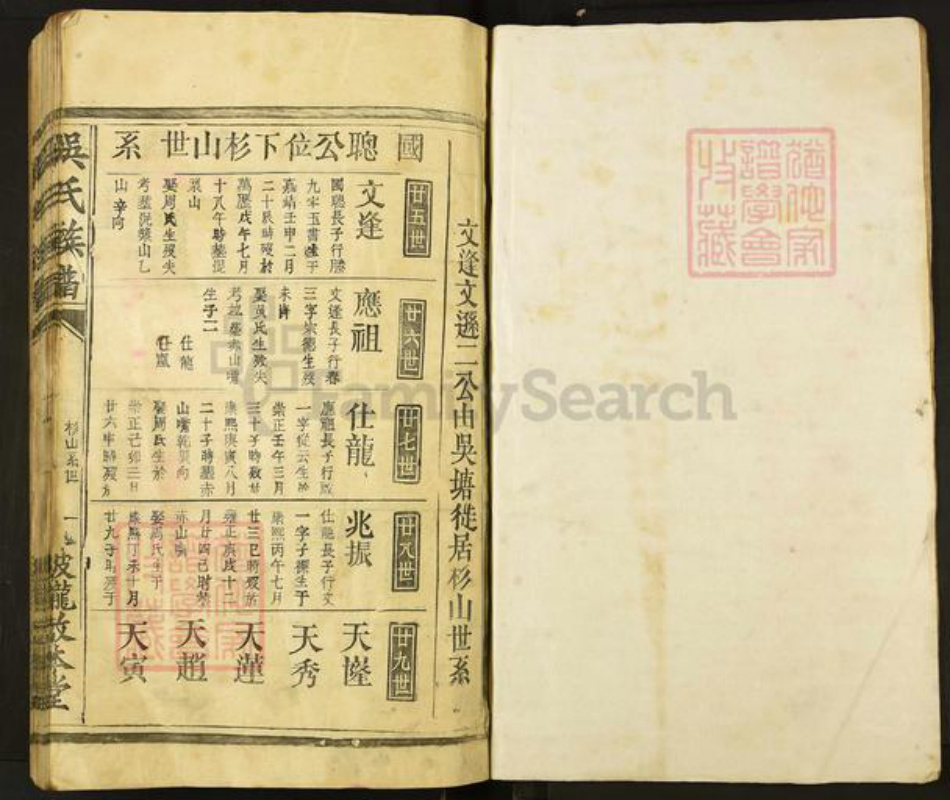 文逢文遜二公由吳塘徙居杉山世系
國聰公位下杉山世系
廿五世
文逢
國聰長子行勝
九字玉書生于
嘉靖壬申二月
二十辰時歿於
萬歷戊午七月
十八午時墓
山
娶周氏生歿失
考墓山乙
山辛向
廿六世
應祖
文逢長子行春
三字宗德生歿
未詳
娶黃氏生歿失
考墓赤山嘴
生子二
仕龍
仕鳳
廿七世
仕龍
應祖長子行
一字從云生於
崇正壬午三月
三十子時歿於
康熙庚寅八月
二十子時墓赤
山嘴乾巽向
娶周氏生於
崇正己卯三月
廿六申時歿於
廿八世
兆振
仕龍長子行文
一字子振生于
康熙丙午七月
廿三巳時歿於
雍正庚戌十二
月廿四巳時墓
赤山嘴
娶馮氏生于
康熙丁未十月
廿九子時歿于
廿九世
天隆
天秀
天蓮
天趙
天寅
吳氏族譜
杉山系世
一
坡龍敦本堂
猶他家譜學會收藏
FamilySearch